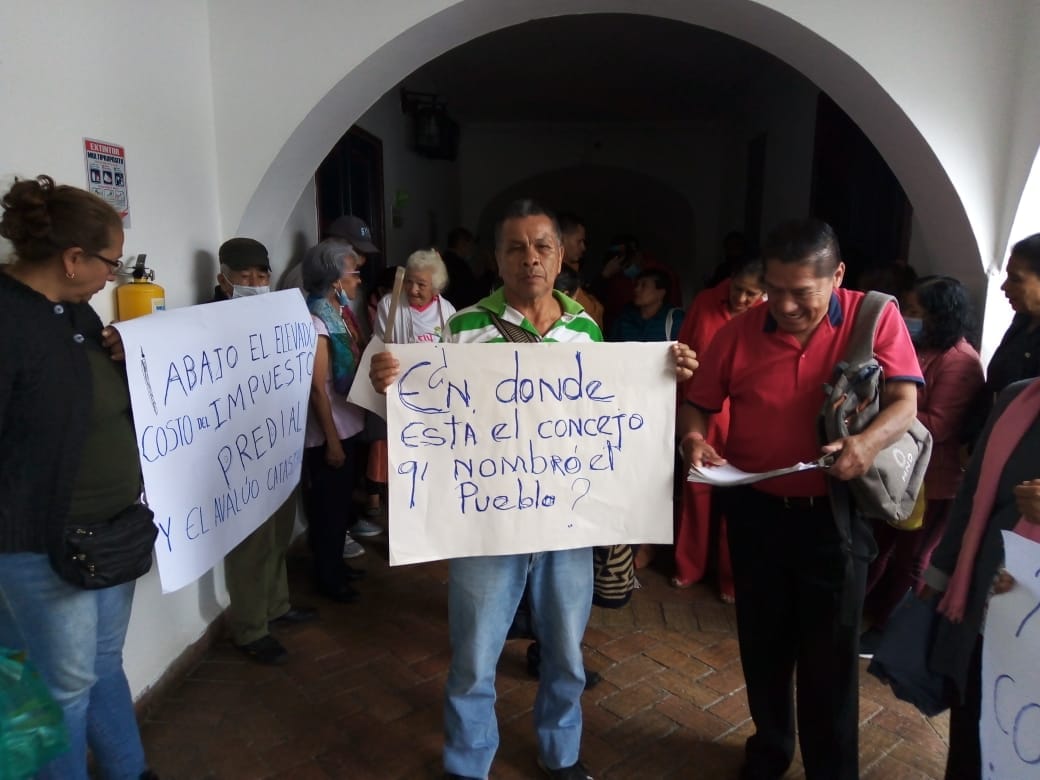 EXTINTOR
MULTIPROPÓSITO
¡ ABAJO EL ELEVADO
COSTO DEL IMPUESTO
PREDIAL
Y EL AVALÚO CATAST
¿EN donde
ESTÁ el CONCEJO
q' NOMBRÓ el
PUEBLO?